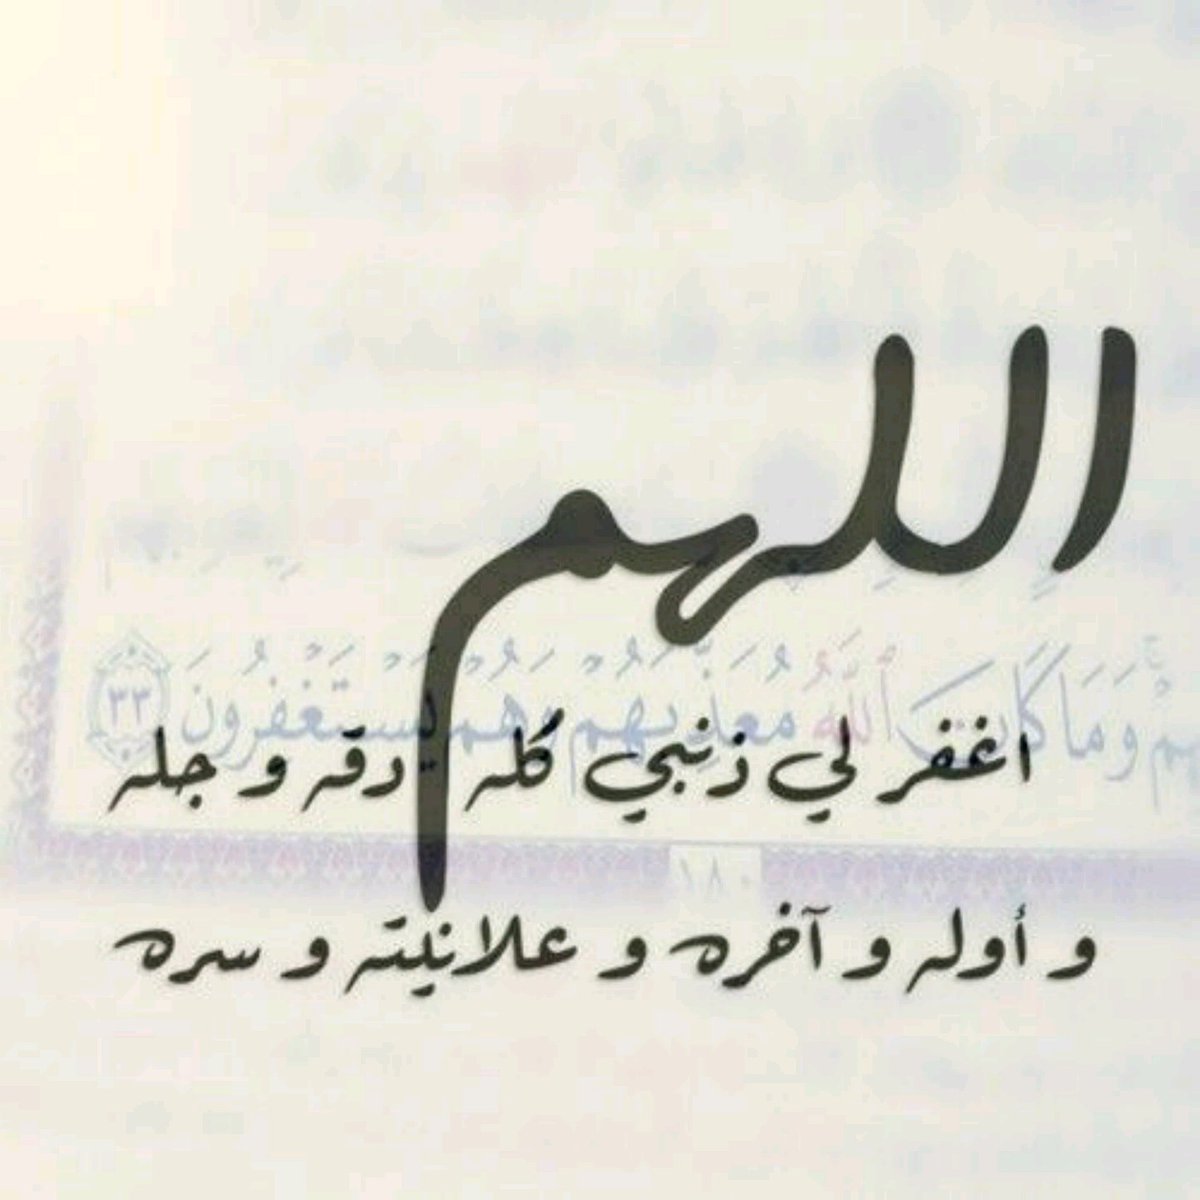 اللهم
وَمَا كَانَ ٱللَّهُ مُعَذِّبَهُمْ وَهُمْ يَسْتَغْفِرُونَ ٣٣
اغفر لي ذنبي كله دقه و جله
١٨٠
و أوله و آخره و علانيته و سره